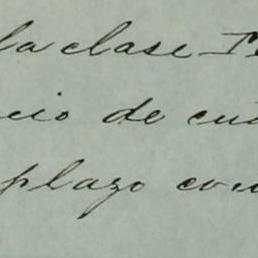 la clase
cio de
plazo con